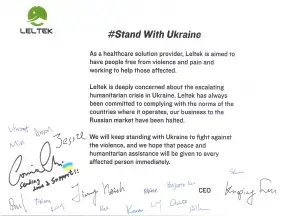 LELTEK
#Stand With Ukraine
As a healthcare solution provider, Leltek is aimed to
have people free from violence and pain and
working to help those affected.
Leltek is deeply concerned about the escalating
humanitarian crisis in Ukraine. Leltek has always
been committed to complying with the norms of the
countries where it operates, our business to the
Russian market have been halted.
We will keep standing with Ukraine to fight against
the violence, and we hope that peace and
humanitarian assistance will be given to every
affected person immediately.
Vincent
Min
Jessie
Sending
Love & Support!
CEO